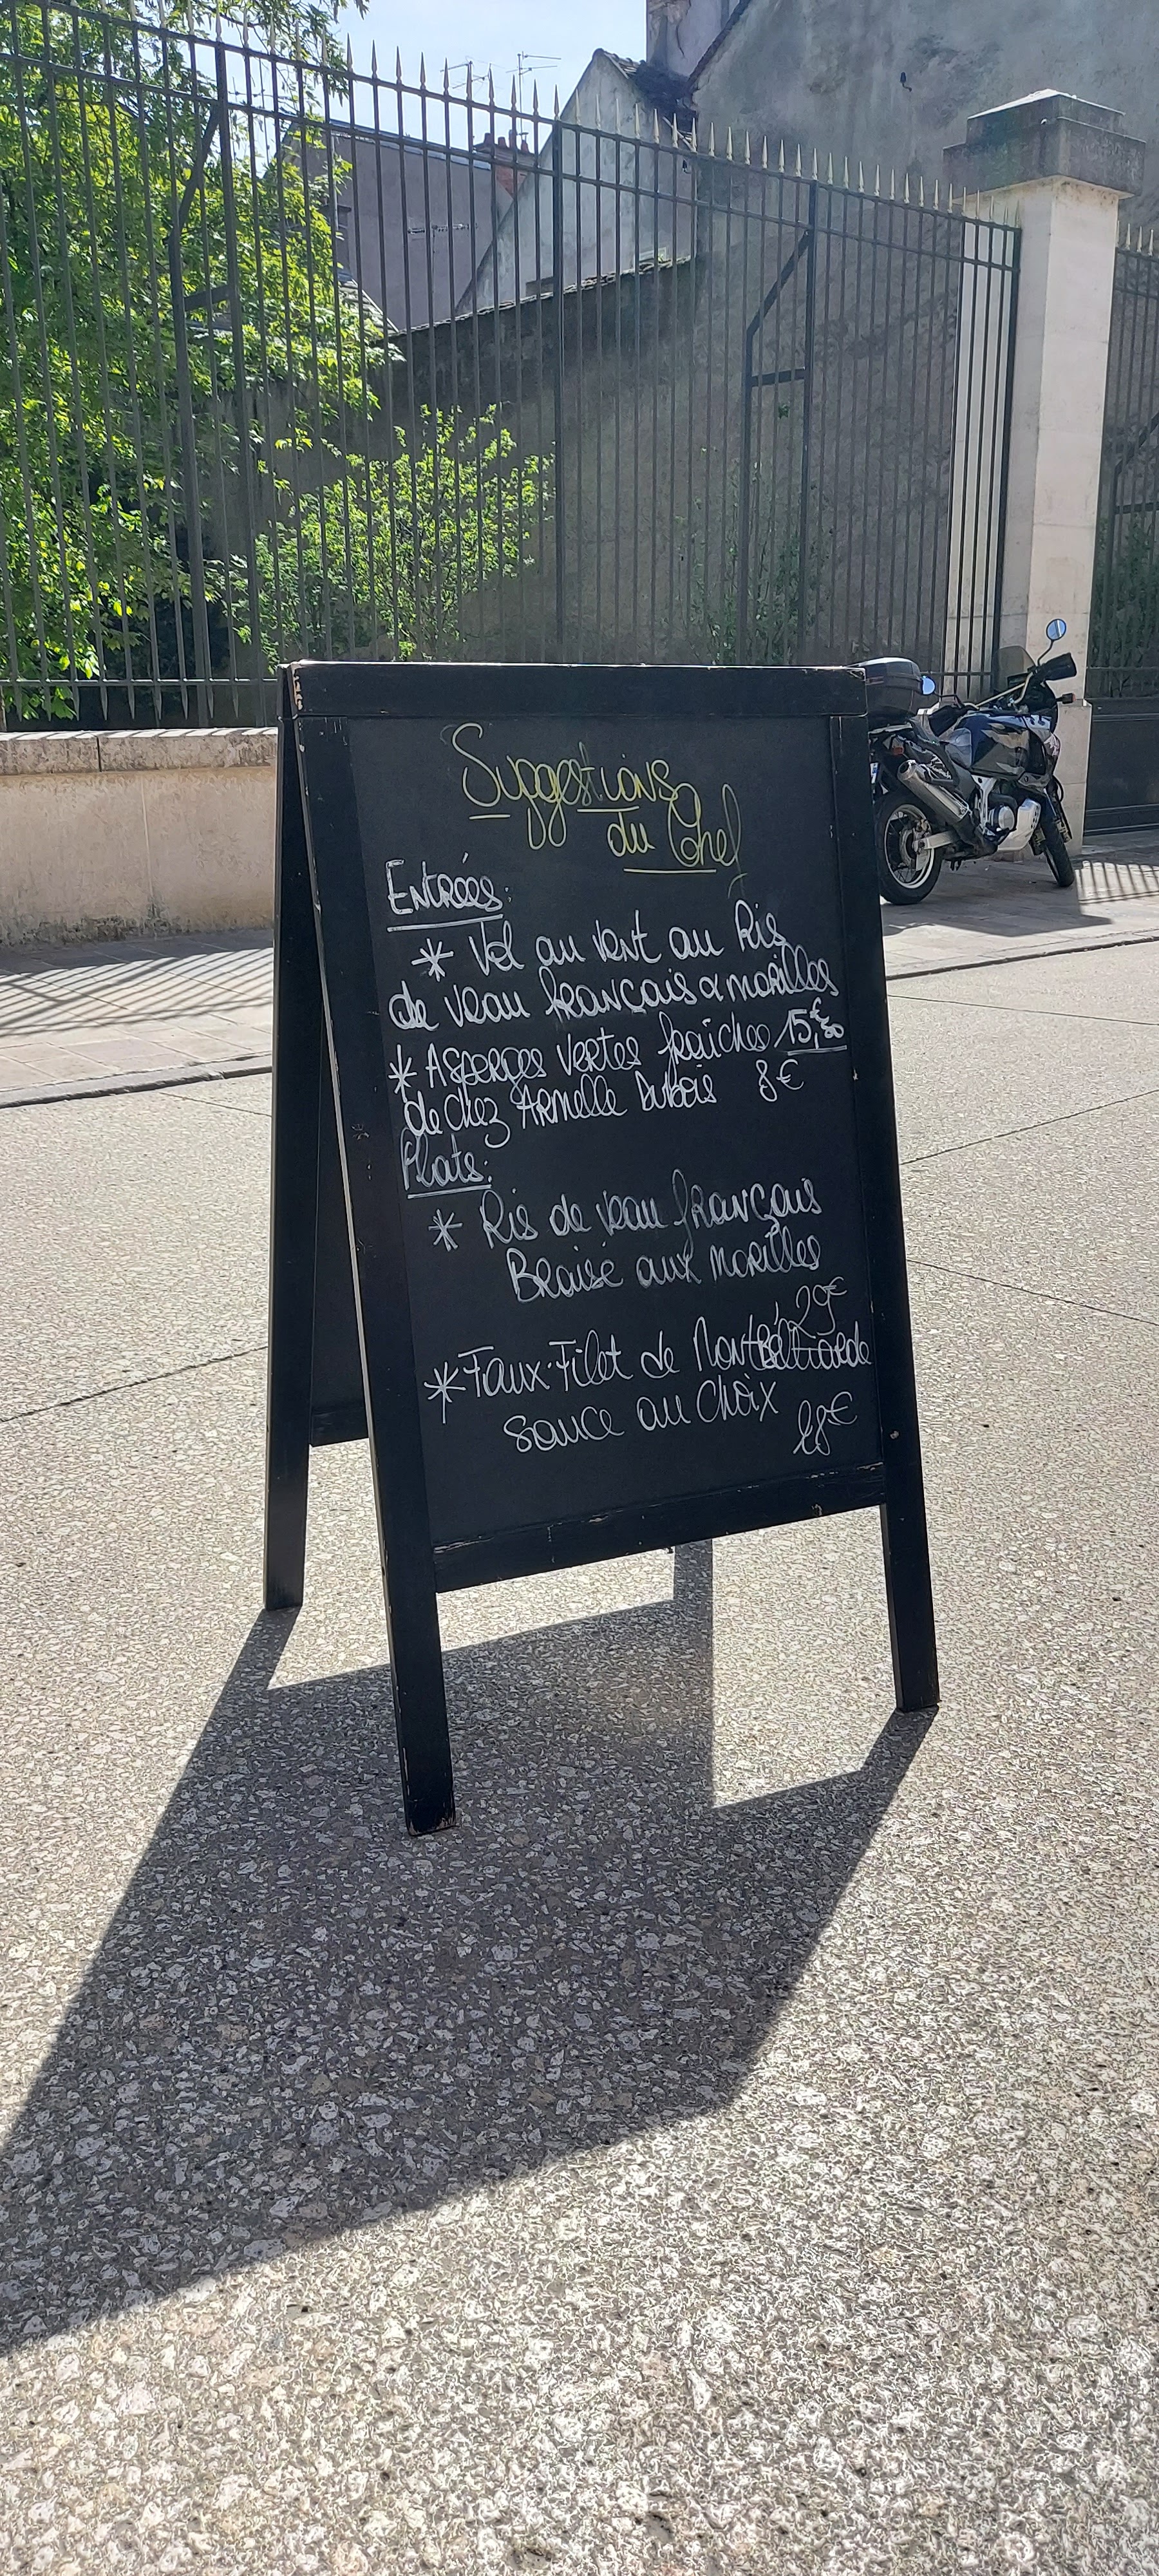 Suggestions
du Chef
Entrées:
* Vol au vent au Ris
de veau français & morilles
* Asperges vertes fraîches 15,€50
de chez Armelle Dubois 8€
Plats:
* Ris de veau français
Braisé aux morilles
29€
* Faux-Filet de Montbéliarde
sauce au choix
28€